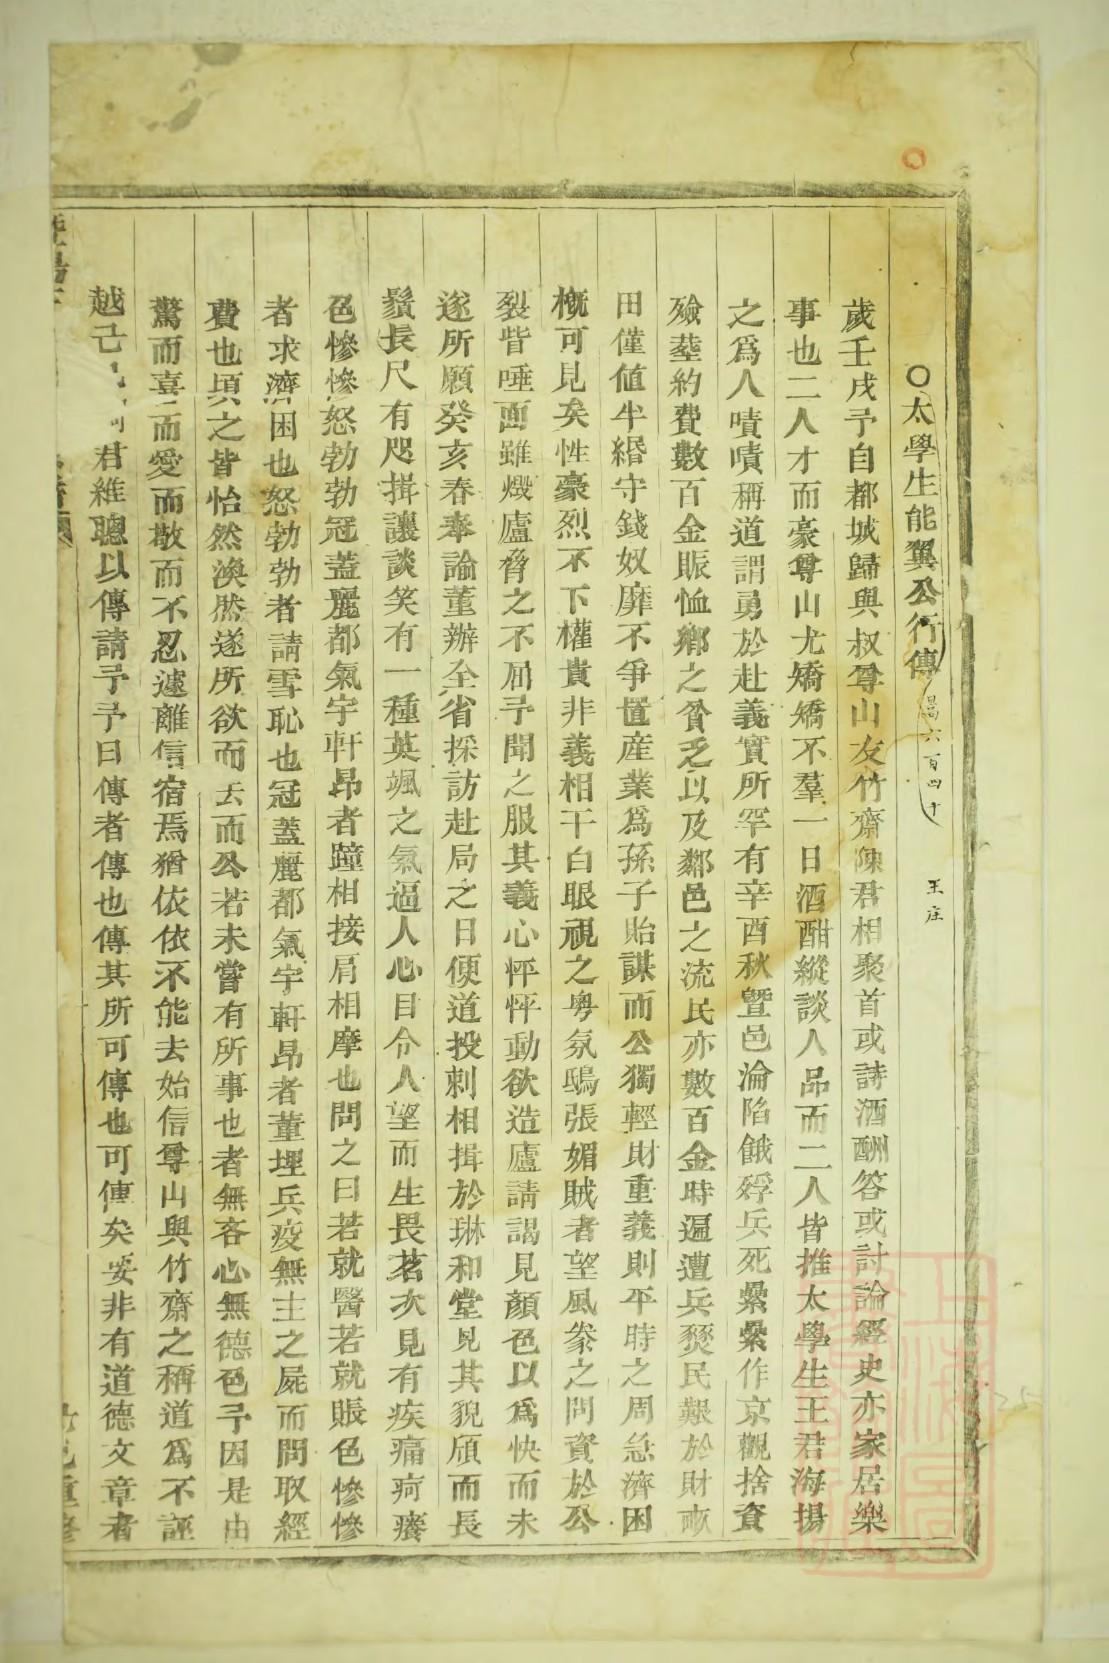 ○太學生能翼公行傳 暠六百四十 王庄
歲壬戌予自都城歸與叔尊山友竹齋陳君相聚首或詩酒酬答或討論經史亦家居樂
事也二人才而豪尊山尤矯矯不羣一日酒酣縱談人品而二人皆推太學生王君海揚
之爲人嘖嘖稱道謂勇於赴義實所罕有辛酉秋暨邑淪陷餓殍兵死纍纍作京觀捨資
殮塟約費數百金賑恤鄉之貧乏以及鄰邑之流民亦數百金時遍遭兵燹民艱於財畝
田僅値半緡守錢奴靡不爭置産業爲孫子貽謀而公獨輕財重義則平時之周急濟困
槪可見矣性豪烈不下權貴非義相干白眼視之粤氛鴟張媚賊者望風豢之問資於公
裂眥唾面雖燬廬脅之不屈予聞之服其義心怦怦動欲造廬請謁見顏色以爲快而未
遂所願癸亥春奉諭董辦全省採訪赴局之日便道投刺相揖於琳和堂見其貌頎而長
鬚長尺有咫揖讓談笑有一種英颯之氣逼人心目令人望而生畏茗次見有疾痛疴癢
色慘慘怒勃勃冠蓋麗都氣宇軒昂者踵相接肩相摩也問之曰若就醫若就賬色慘慘
者求濟困也怒勃勃者請雪恥也冠蓋麗都氣宇軒昂者董埋兵疫無主之屍而問取經
費也頃之皆怡然渙然遂所欲而去而公若未嘗有所事也者無吝心無德色予因是由
驚而喜而愛而敬而不忍遽離信宿焉猶依依不能去始信尊山與竹齋之稱道爲不誣
越己君維聰以傳請予予曰傳者傳也傳其所可傳也可傳矣妥非有道德文章者